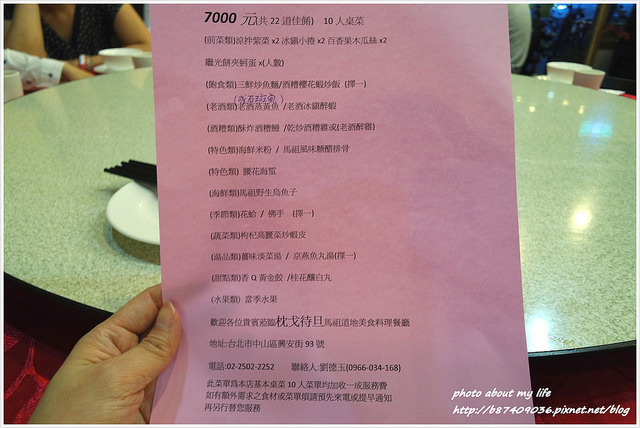 7000 元(共 22 道佳餚) 10 人桌菜
(前菜類)涼拌紫菜 x2 冰鎮小捲 x2 百香果木瓜絲 x2
繼光餅夾蚵蛋 x(人數)
(飽食類)三鮮炒魚麵/酒糟櫻花蝦炒飯 (擇一)
(或石斑魚)
(老酒類)老酒蒸黃魚 /老酒冰鎮醉蝦
(酒糟類)酥炸酒糟鰻 /乾炒酒糟雞或(老酒醉雞)
(特色類)海鮮米粉 / 馬祖風味糖醋排骨
(特色類) 腰花海蜇
(海鮮類)馬祖野生烏魚子
(季節類)花蛤 / 佛手 (擇一)
(蔬菜類)枸杞高麗菜炒蝦皮
(湯品類)薑味淡菜湯 / 京燕魚丸湯(擇一)
(甜點類)香 Q 黃金餃 /桂花釀白丸
(水果類) 當季水果
歡迎各位貴賓蒞臨枕戈待旦馬祖道地美食料理餐廳
地址:台北市中山區興安街 93 號
電話:02-2502-2252 聯絡人:劉德玉(0966-034-168)
此菜單為本店基本桌菜 10 人菜單均加收一成服務費
如有額外需求之食材或菜單煩請預先來電或提早通知
再另行替您服務
photo about my life
http://b87409036.pixnet.net/blog